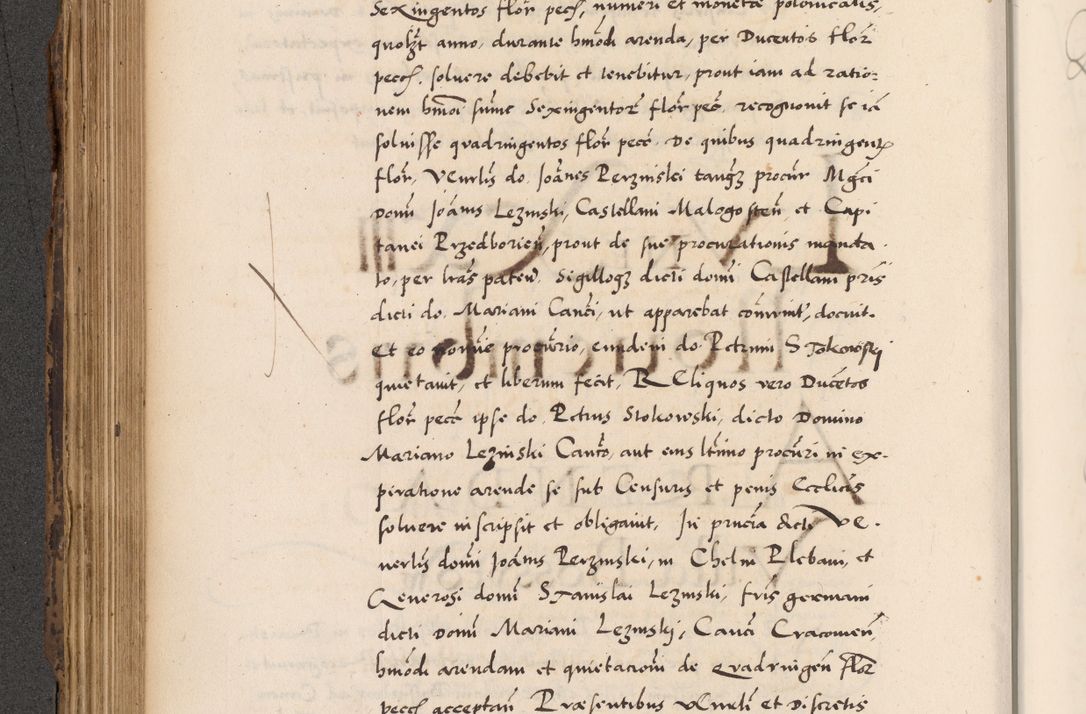 Sexingentos flor pecc, numeri et monetæ polonicalis,
quolzt anno, durante hmodi arenda, per Ducentos flor
pecc, soluere debebit et tenebitur, prout iam ad ratio:
nem hmoi sume Sexingentor flor pec. recognouit se ia
soluisse quadringentos flor pecc. De quibus quadringent
flor, Venrlis do. Joānes Perzinski tanqz procur Mgci
Domi Joānis Lezinski, Castellani Malogosten, et Capi
tanei Przedborien, prout de sue procurationis manda
to, per lras paten. Sigilloqz dicti domi Castellani pris
dicti do. Mariani Canci, ut apparebat comunit, docuit.
Et eo nomine procurrio, eundem do. Petrum Stokowski
quietauit, et liberum fecit, Reliquos vero Ducetos
flor pecc ipse do. Petrus Stokowski, dicto Domino
Mariano Lezinski Canco, aut eius ltimo procuri in ex-
piratione arende se sub Censuris et penis Ecclicis
soluere inscripsit et obligauit, In prncia dicti Ve.
nerlis domi Joānis Perzinski, in Chelm Plebani, et
Generosi domi Stanislai Lezinski, fris germani
dicti Domi Mariani Lezinski, Canci Cracouien,
hmodi arendam et quietacioni de Quadringen flor
pecc acceptan Præsentibus Venrli et Discretis